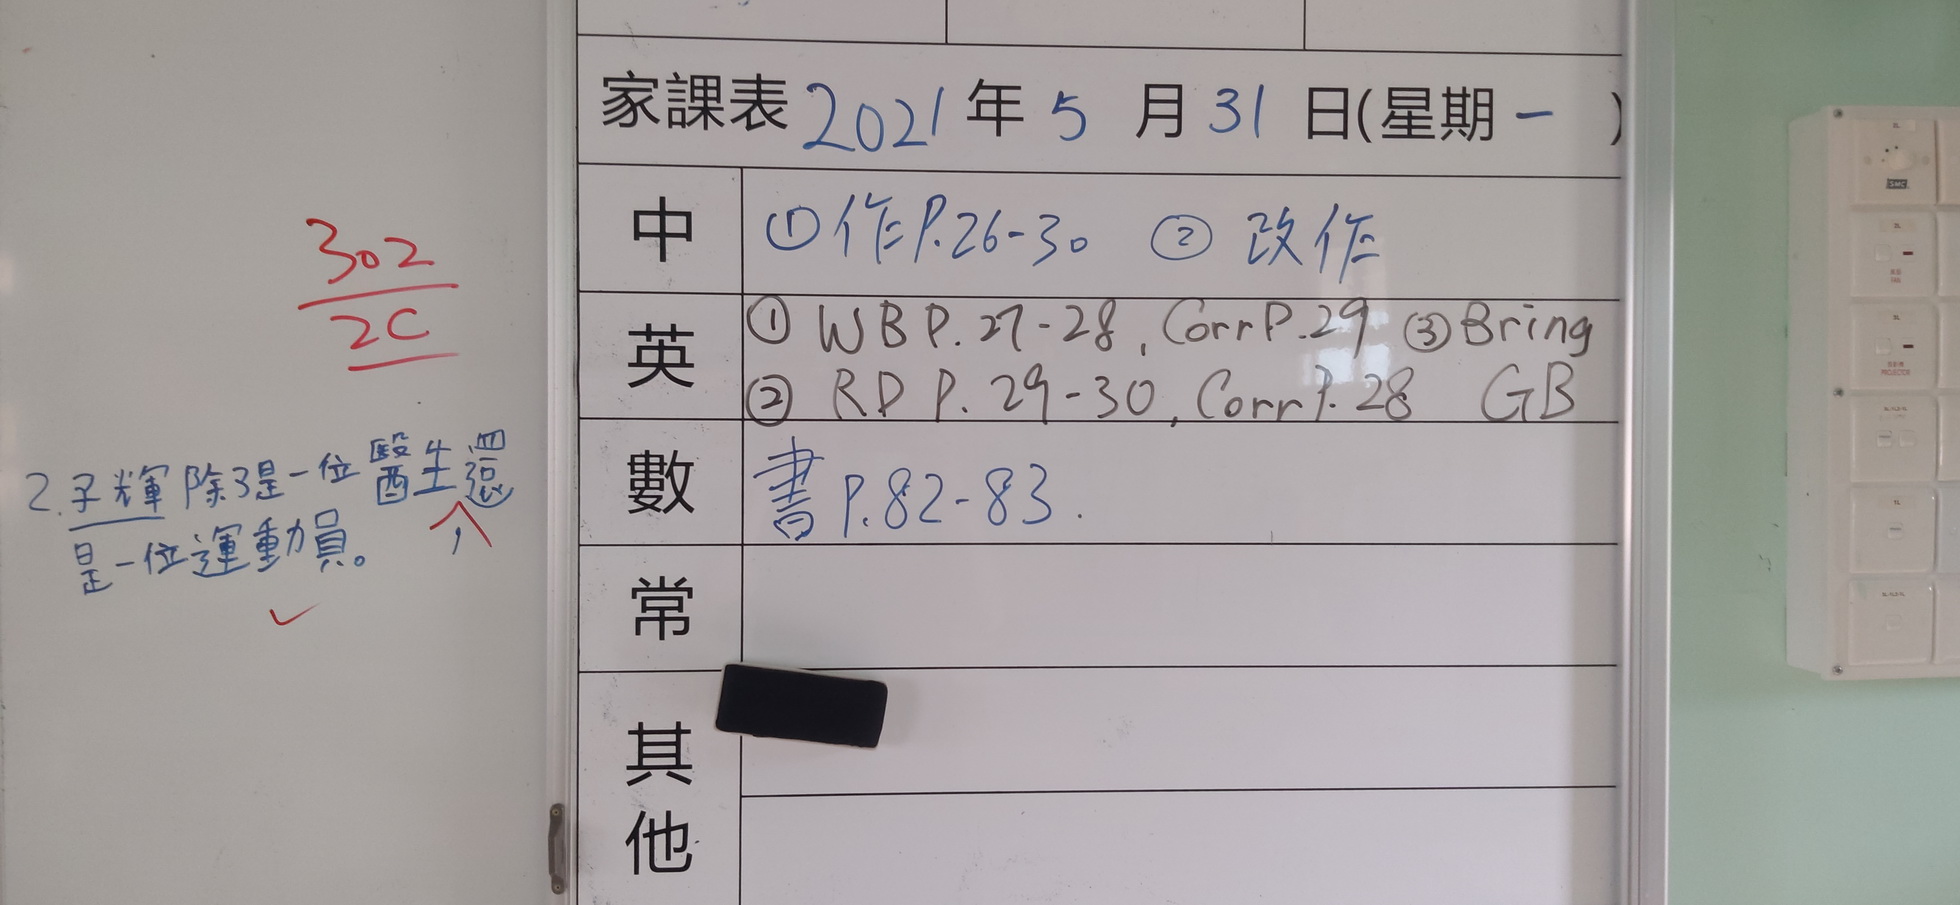 302
2C
2.子輝除了是一位醫生,還
是一位運動員。
家課表2021年5月31日(星期一)
中 ①作P.26-30 ②改作
英 ①WB P.27-28, Corr P.29 ③Bring
②RD P.29-30, Corr P.28 GB
數 書P.82-83.
常
其
他
SMC